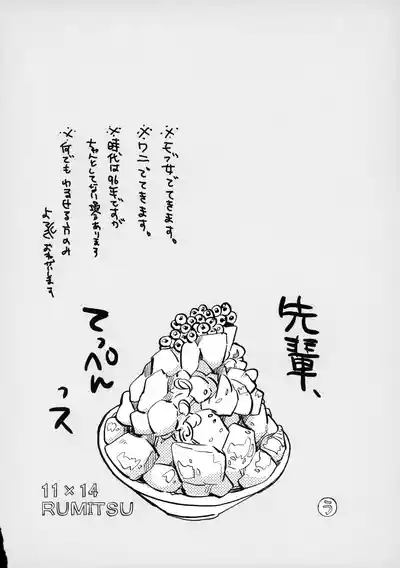 ※モブ女でてきます。
※ワニでてきます。
※時代は96年ですが
ちゃんとして
※何でもゆるせる方のみ
おねがいします
先輩、
てっぺん
っス
11×14
RUMITSU
う